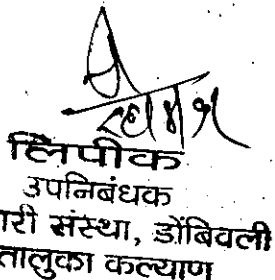 लिपीक
उपनिबंधक
ारी संस्था, डोंबिवली
तालुका कल्याण